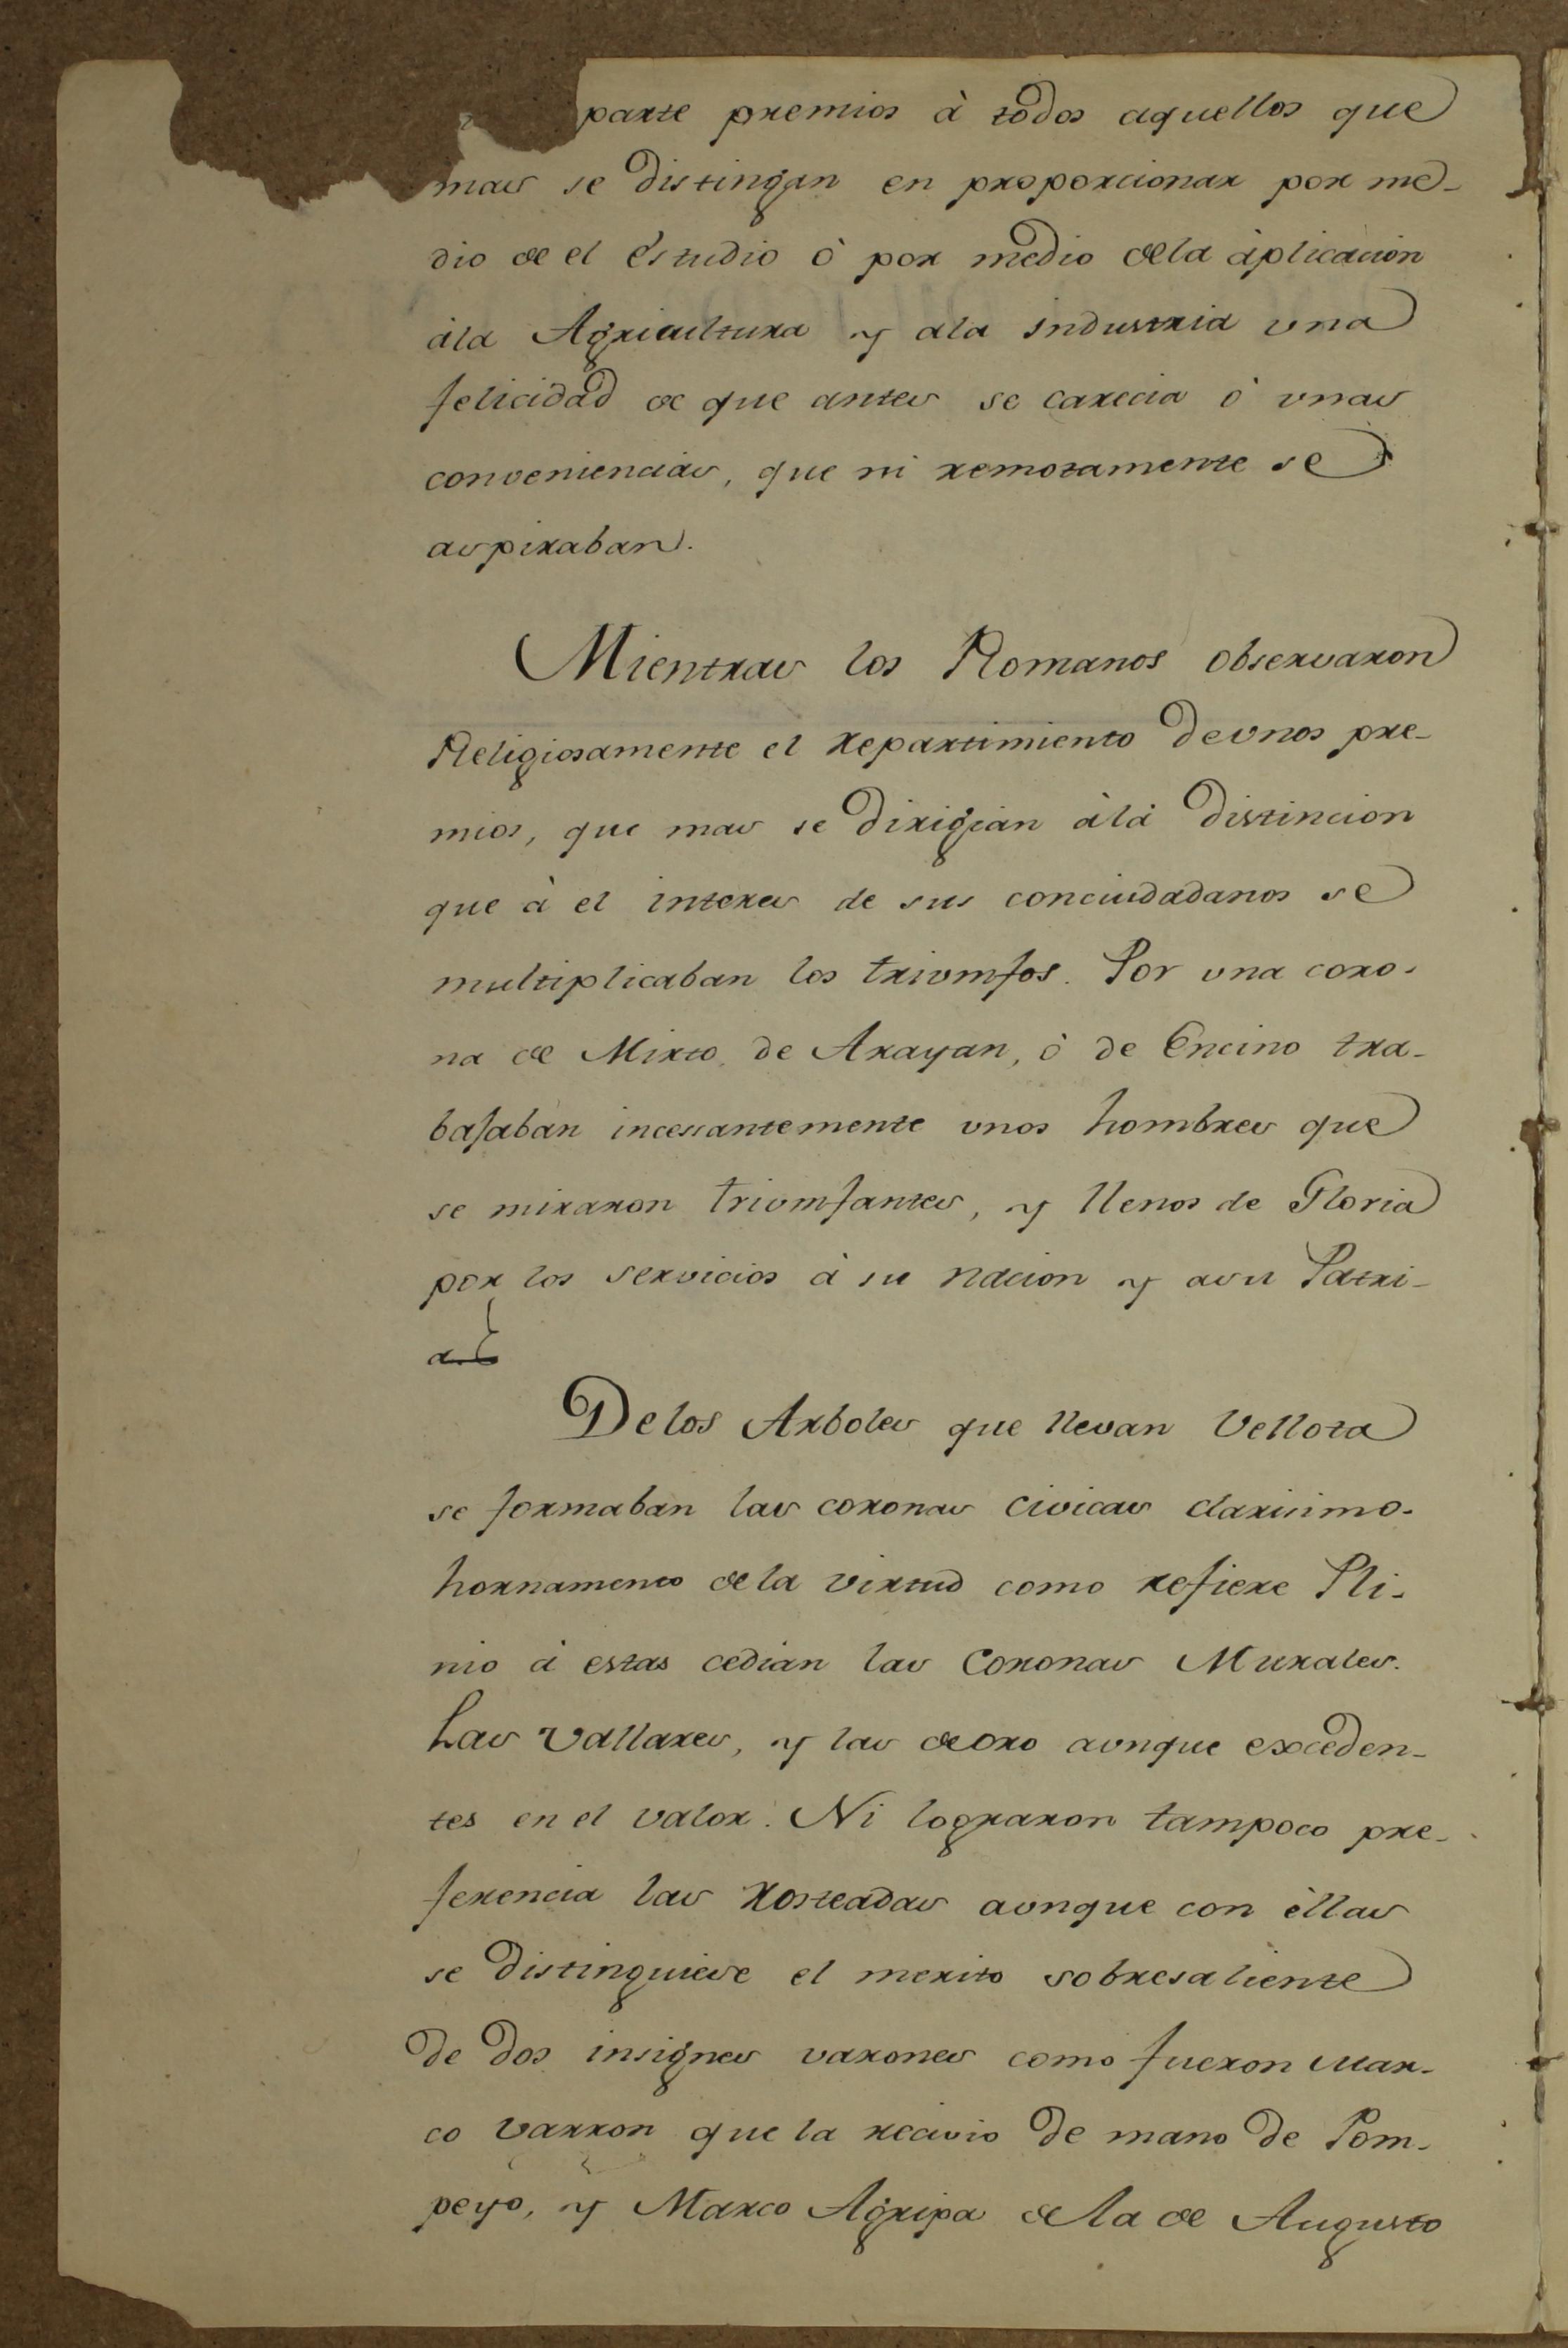 parte premios à todos aquellos que
mas se distingan en proporcionar por me-
dio de el éstudio ò por medio dela àplicacion
àla Agricultura y ala industria una
felicidad de que antes se carecia ò unas
conveniencias, que ni remotamente se
aspiraban.
Mientras los Romanos observaron
Religiosamente el repartimiento de unos pre-
mios, que mas se dirigian àla distincion
que à el interes de sus conciudadanos se
multiplicaban los triumfos. Por una coro-
na de Mirto, de Arayan, ò de Encino tra-
bajaban incesantemente unos hombres que
se miraron triumfantes, y llenos de Gloria
por los servicios à su nacion y asu Patri-
a.
Delos Arboles que llevan Vellota
se formaban las coronas civicas clarisimo-
hornamento dela virtud como refiere Pli-
nio à estas cedian las Coronas Murales.
Las Vallares, y las de oro aunque exceden-
tes en el valor. Ni lograron tampoco pre-
ferencia las rosteadas aunque con èllas
se distinguiese el merito sobresaliente
de dos insignes varones como fueron Mar-
co Varron que la recivio de mano de Pom-
peyo, y Marco Agripa dela de Augusto